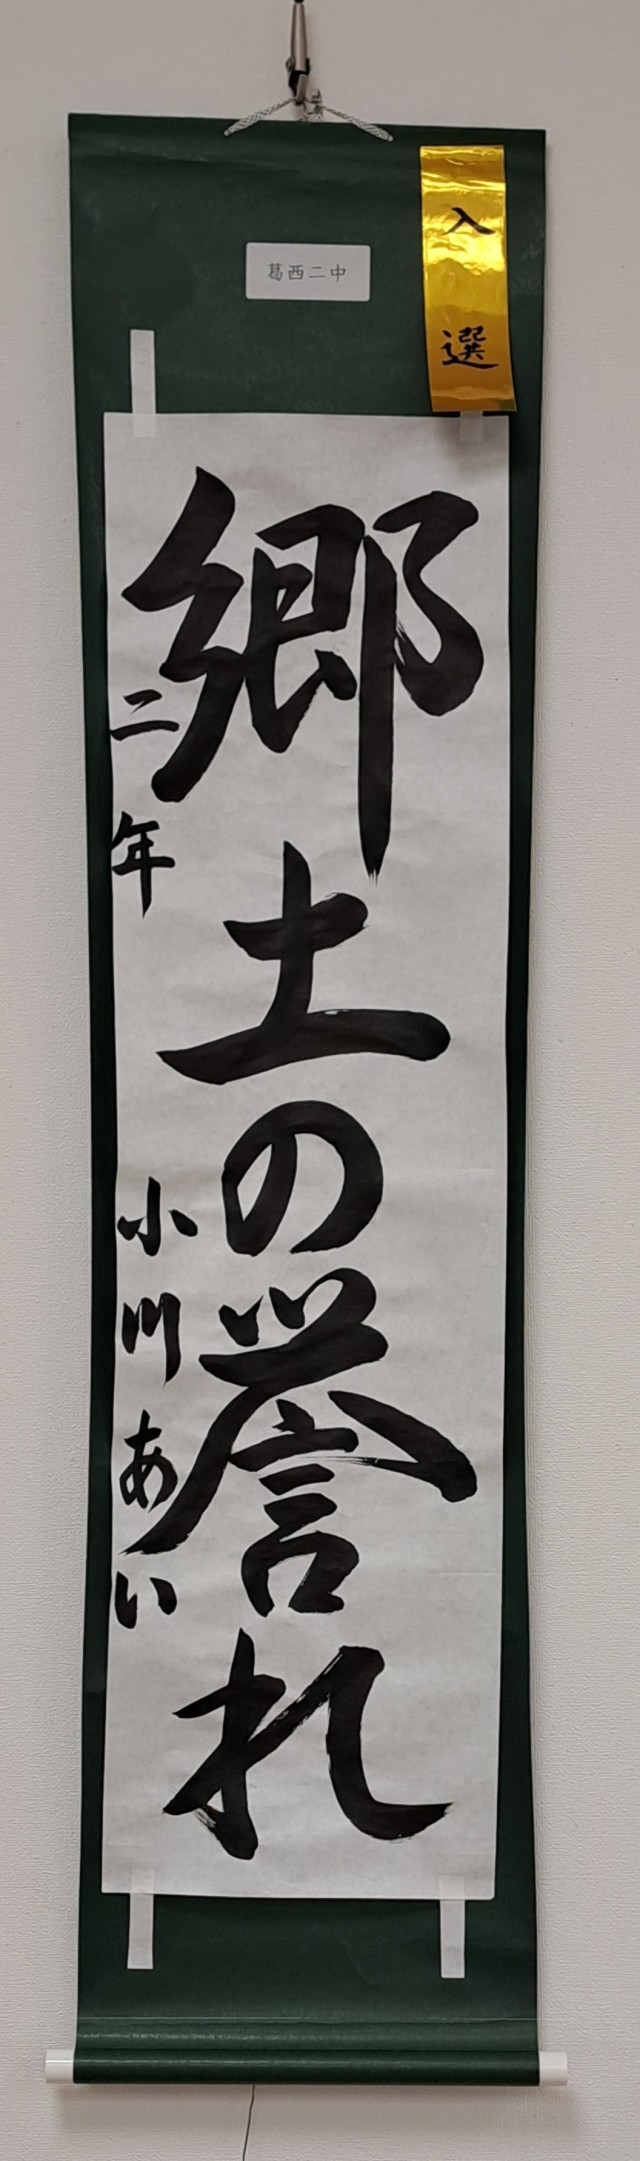 入選
葛西二中
郷土の誉れ
二年 小川あい